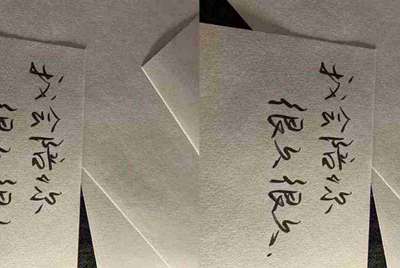 我会陪你
很久很久.
我会陪你
很久很